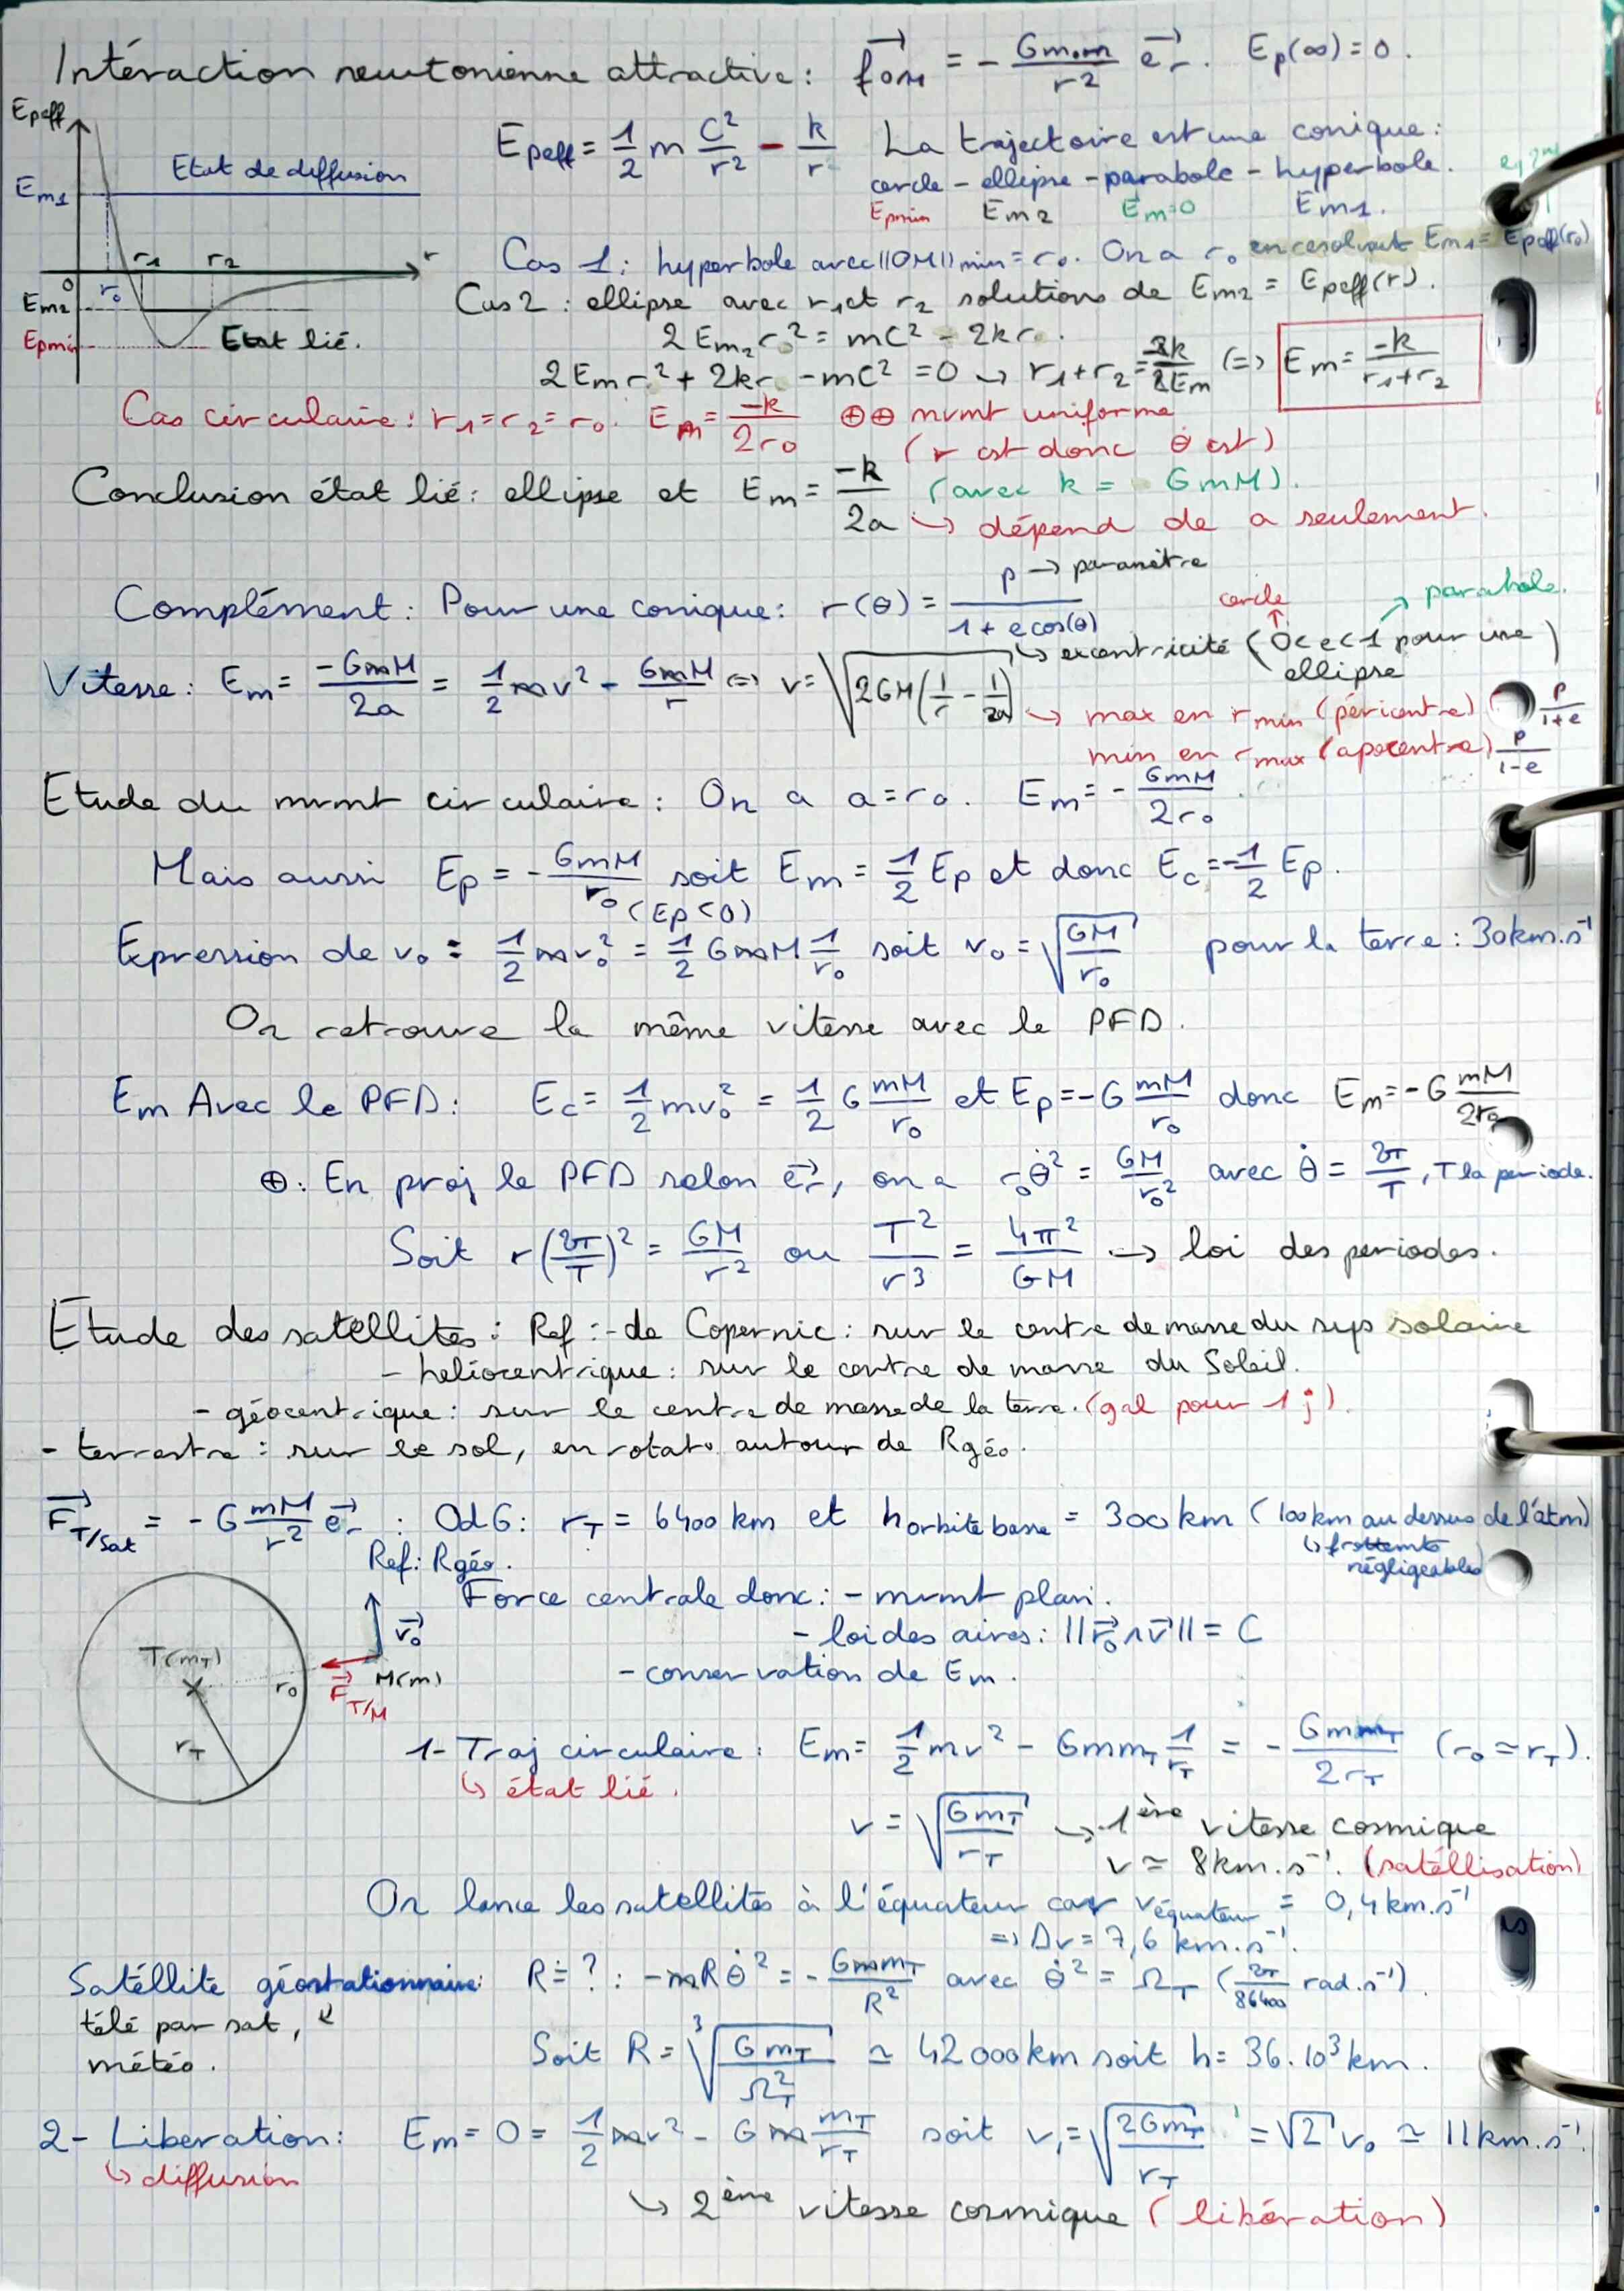 Intéraction newtonienne attractive : f→OM = - Gm₀m/r² e→r . Ep(∞) = 0 .
Epeff
Epeff = 1/2 m C²/r² - k/r La trajectoire est une conique :
Etat de diffusion
cercle - ellipse - parabole - hyperbole.
Em1
Epmin Em2 Em=0 Em1.
r1 r2 r
Cas 1 : hyperbole avec ||OM||min = r₀. On a r₀ en résolvant Em1 = Epeff(r₀)
0 r₀
Em2
Cas 2 : ellipse avec r1 et r2 solutions de Em2 = Epeff(r).
Epmin Etat lié.
2Em2 r₀² = mC² - 2kr₀.
2Em r² + 2kr - mC² = 0 → r1+r2 = -2k/2Em (=) Em = -k/(r1+r2)
Cas circulaire : r1 = r2 = r₀. Em = -k/2r₀ ⊕⊕ mvmt uniforme
(r cst donc θ̇ cst)
Conclusion état lié : ellipse et Em = -k/2a (avec k = GmM).
↳ dépend de a seulement.
Complément : Pour une conique : r(θ) = p/(1+ecos(θ))
p → paramètre
cercle parabole.
↳ excentricité (0<e<1 pour une ellipse)
Vitesse : Em = -GmM/2a = 1/2 mv² - GmM/r (=) v = √(2GM(1/r - 1/2a))
↳ max en rmin (péricentre) p/(1+e)
min en rmax (apocentre) p/(1-e)
Etude du mvmt circulaire : On a a=r₀. Em = - GmM/2r₀ .
Mais aussi Ep = - GmM/r₀ soit Em = 1/2 Ep et donc Ec = -1/2 Ep.
(Ep<0)
Epression de v₀ : 1/2 mv₀² = 1/2 GmM 1/r₀ soit v₀ = √(GM/r₀) pour la terre : 30km.s⁻¹
On retrouve la même vitesse avec le PFD.
Em Avec le PFD : Ec = 1/2 mv₀² = 1/2 G mM/r₀ et Ep = -G mM/r₀ donc Em = -G mM/2r₀
⊕ : En proj le PFD selon e→r, on a r₀θ̇² = GM/r₀² avec θ̇ = 2π/T, T la periode.
Soit r(2π/T)² = GM/r² ou T²/r³ = 4π²/GM → loi des periodes.
Etude des satellites : Ref : - de Copernic : sur le centre de masse du sys solaire
- héliocentrique : sur le centre de masse du Soleil.
- géocentrique : sur le centre de masse de la terre. (gal pour 1j).
- terrestre : sur le sol, en rotat° autour de Rgéo.
F→T/Sat = - G mM/r² e→r : OdG : rT = 6400 km et horbite basse = 300 km (100km au dessus de l'atm)
↳ frottemts négligeables
Ref : Rgéo.
Force centrale donc : - mvmt plan.
- loi des aires : ||r→₀ ∧ v→|| = C
- conservation de Em.
T(mT) r₀ v→₀ M(m) F→T/M rT
1- Traj circulaire : Em = 1/2 mv² - GmmT 1/rT = - GmmT/2rT (r₀ ≃ rT).
↳ état lié.
v = √(GmT/rT) ↳ 1ère vitesse cosmique
v ≃ 8km.s⁻¹. (satéllisation)
On lance les satellites à l'équateur car véquateur = 0,4km.s⁻¹
=> Δv = 7,6 km.s⁻¹.
Satéllite géostationnaire : R = ? : -mRθ̇² = - GmmT/R² avec θ̇² = ΩT (2π/86400 rad.s⁻¹).
télé par sat,
météo.
Soit R = ³√(GmT/ΩT²) ≃ 42 000km soit h = 36.10³km.
2- Liberation : Em = 0 = 1/2 mv² - Gm mT/rT soit v₁ = √(2GmT/rT) = √2 v₀ ≃ 11km.s⁻¹.
↳ diffusion
↳ 2ème vitesse cosmique (libération)